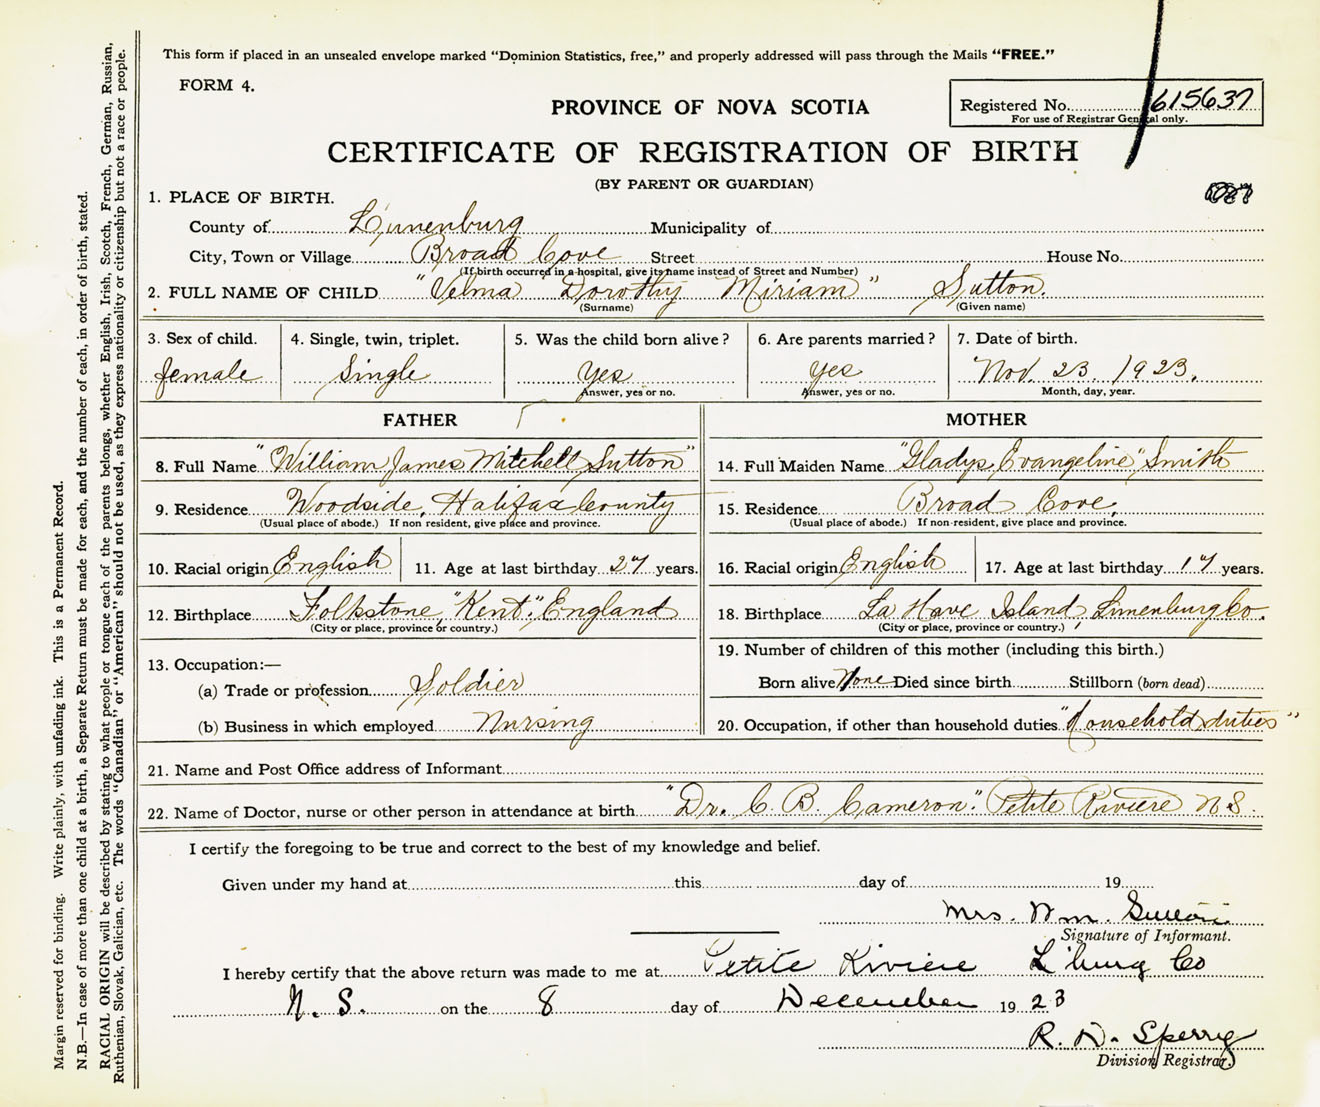 This form if placed in an unsealed envelope marked “Dominion Statistics, free,” and properly addressed will pass through the Mails “FREE.”
FORM 4.
PROVINCE OF NOVA SCOTIA
Registered No. 615637
For use of Registrar General only.
CERTIFICATE OF REGISTRATION OF BIRTH
(BY PARENT OR GUARDIAN)
1. PLACE OF BIRTH.
County of Lunenburg Municipality of
City, Town or Village Broad Cove Street House No.
(If birth occurred in a hospital, give its name instead of Street and Number)
2. FULL NAME OF CHILD "Velma Dorothy Miriam" Sutton.
(Surname) (Given name)
3. Sex of child. 4. Single, twin, triplet. 5. Was the child born alive? 6. Are parents married? 7. Date of birth.
female Single Yes Yes Nov. 23. 1923.
Answer, yes or no. Answer, yes or no. Month, day, year.
FATHER MOTHER
8. Full Name "William James Mitchell Sutton" 14. Full Maiden Name "Gladys Evangeline" Smith
9. Residence Woodside, Halifax County 15. Residence Broad Cove,
(Usual place of abode.) If non resident, give place and province. (Usual place of abode.) If non-resident, give place and province.
10. Racial origin English 11. Age at last birthday 27 years. 16. Racial origin English 17. Age at last birthday 17 years.
12. Birthplace Folkstone, "Kent," England 18. Birthplace La Have Island, Lunenburg Co.
(City or place, province or country.) (City or place, province or country.)
13. Occupation:— 19. Number of children of this mother (including this birth.)
(a) Trade or profession Soldier Born alive None Died since birth Stillborn (born dead)
(b) Business in which employed Nursing 20. Occupation, if other than household duties "household duties"
21. Name and Post Office address of Informant
22. Name of Doctor, nurse or other person in attendance at birth "Dr. C. B. Cameron." Petite Riviere N.S.
I certify the foregoing to be true and correct to the best of my knowledge and belief.
Given under my hand at this day of 19
Mrs. Wm. Sutton
Signature of Informant.
I hereby certify that the above return was made to me at Petite Riviere L'burg Co
N. S. on the 8 day of December 1923
R. D. Sperry
Division Registrar.
Margin reserved for binding. Write plainly, with unfading ink. This is a Permanent Record.
N.B.—In case of more than one child at a birth, a Separate Return must be made for each, and the number of each, in order of birth, stated.
RACIAL ORIGIN will be described by stating to what people or tongue each of the parents belongs, whether English, Irish, Scotch, French, German, Russian,
Ruthenian, Slovak, Galician, etc. The words “Canadian” or “American” should not be used, as they express nationality or citizenship but not a race or people.